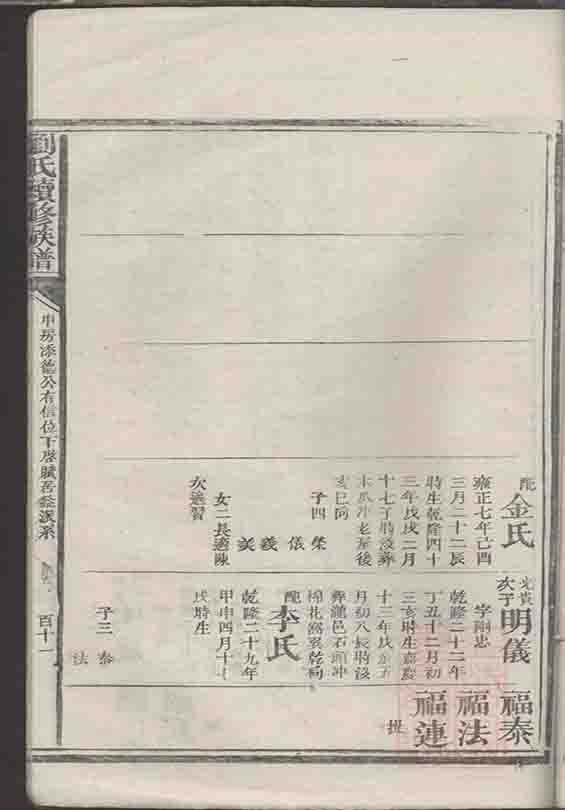 配
金氏
雍正七年己酉
三月二十二辰
時生乾隆四十
三年戊戌二月
十七丁時沒葬
木瓜冲老屋後
亥巳向
子四
榮
儀
義
美
女二長適陳
次適習
光貴
次子
明儀
字剛忠
乾隆二十二年
丁丑十二月初
三亥時生嘉慶
十三年戊辰五
月初八辰時沒
葬瀧邑石頭冲
棉花窩巽乾向
配
李氏
乾隆二十九年
甲申四月十七
戌時生
子三
泰
法
福泰
福法
福連
劉氏續修族譜
申房添德公有信位下
派系
百十一